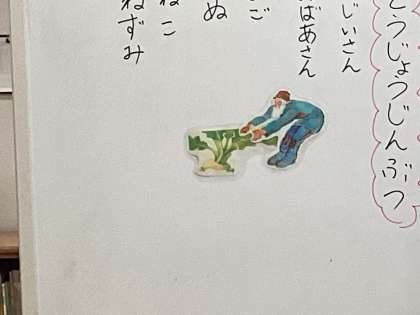 とうじょうじんぶつ
じいさん
ばあさん
ご
ぬ
ねこ
ねずみ